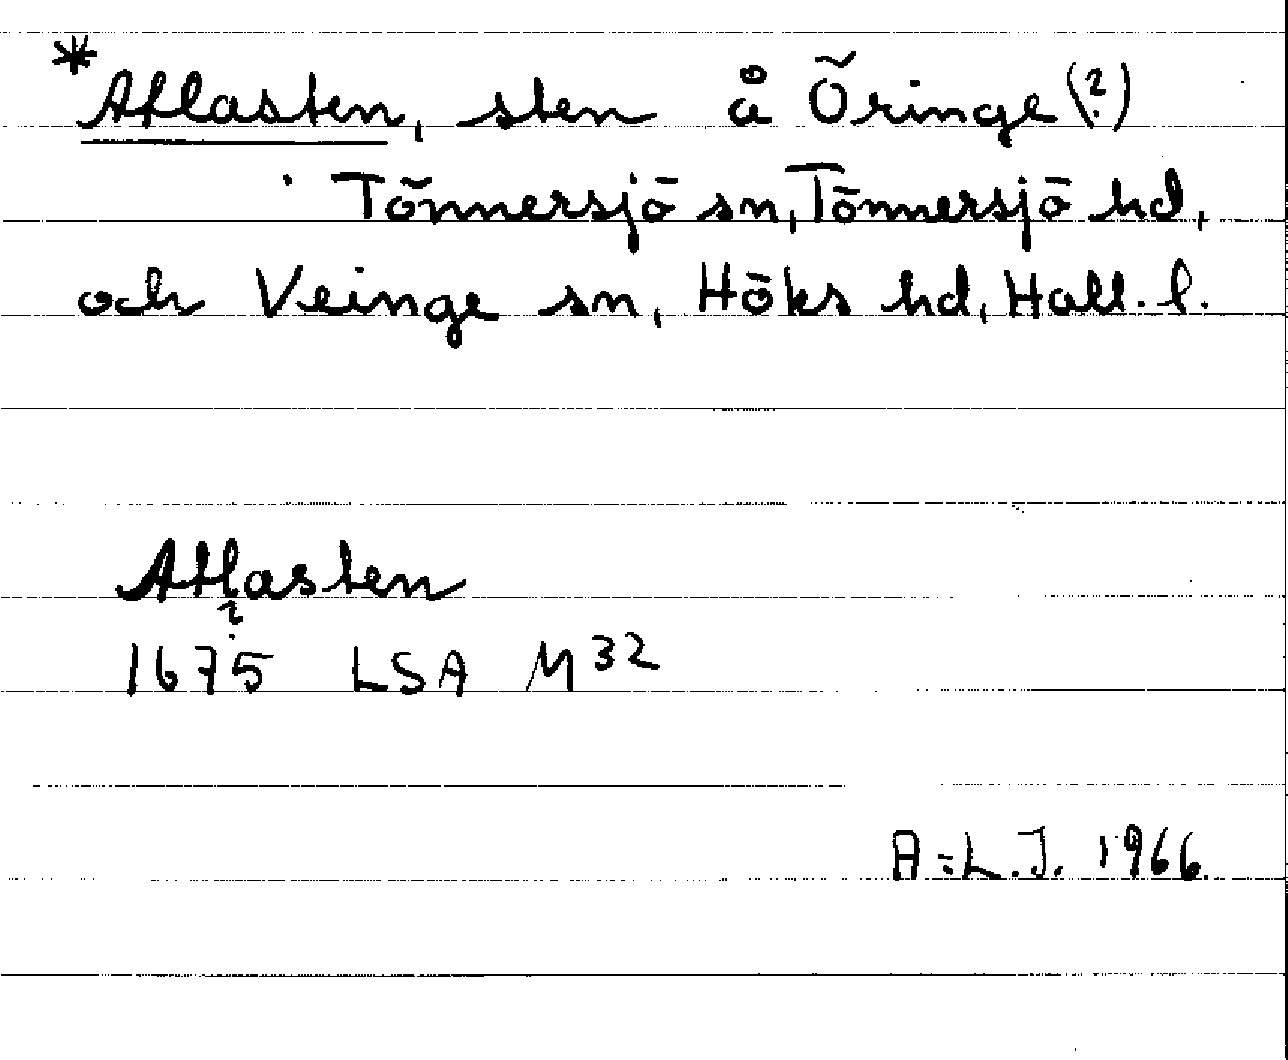 *Atlasten, sten å Öringe (?)
Tönnersjö sn, Tönnersjö hd,
och Veinge sn, Höks hd, Hall. l.
Atlasten
?
1675 LSA M32
A=L.J. 1966.